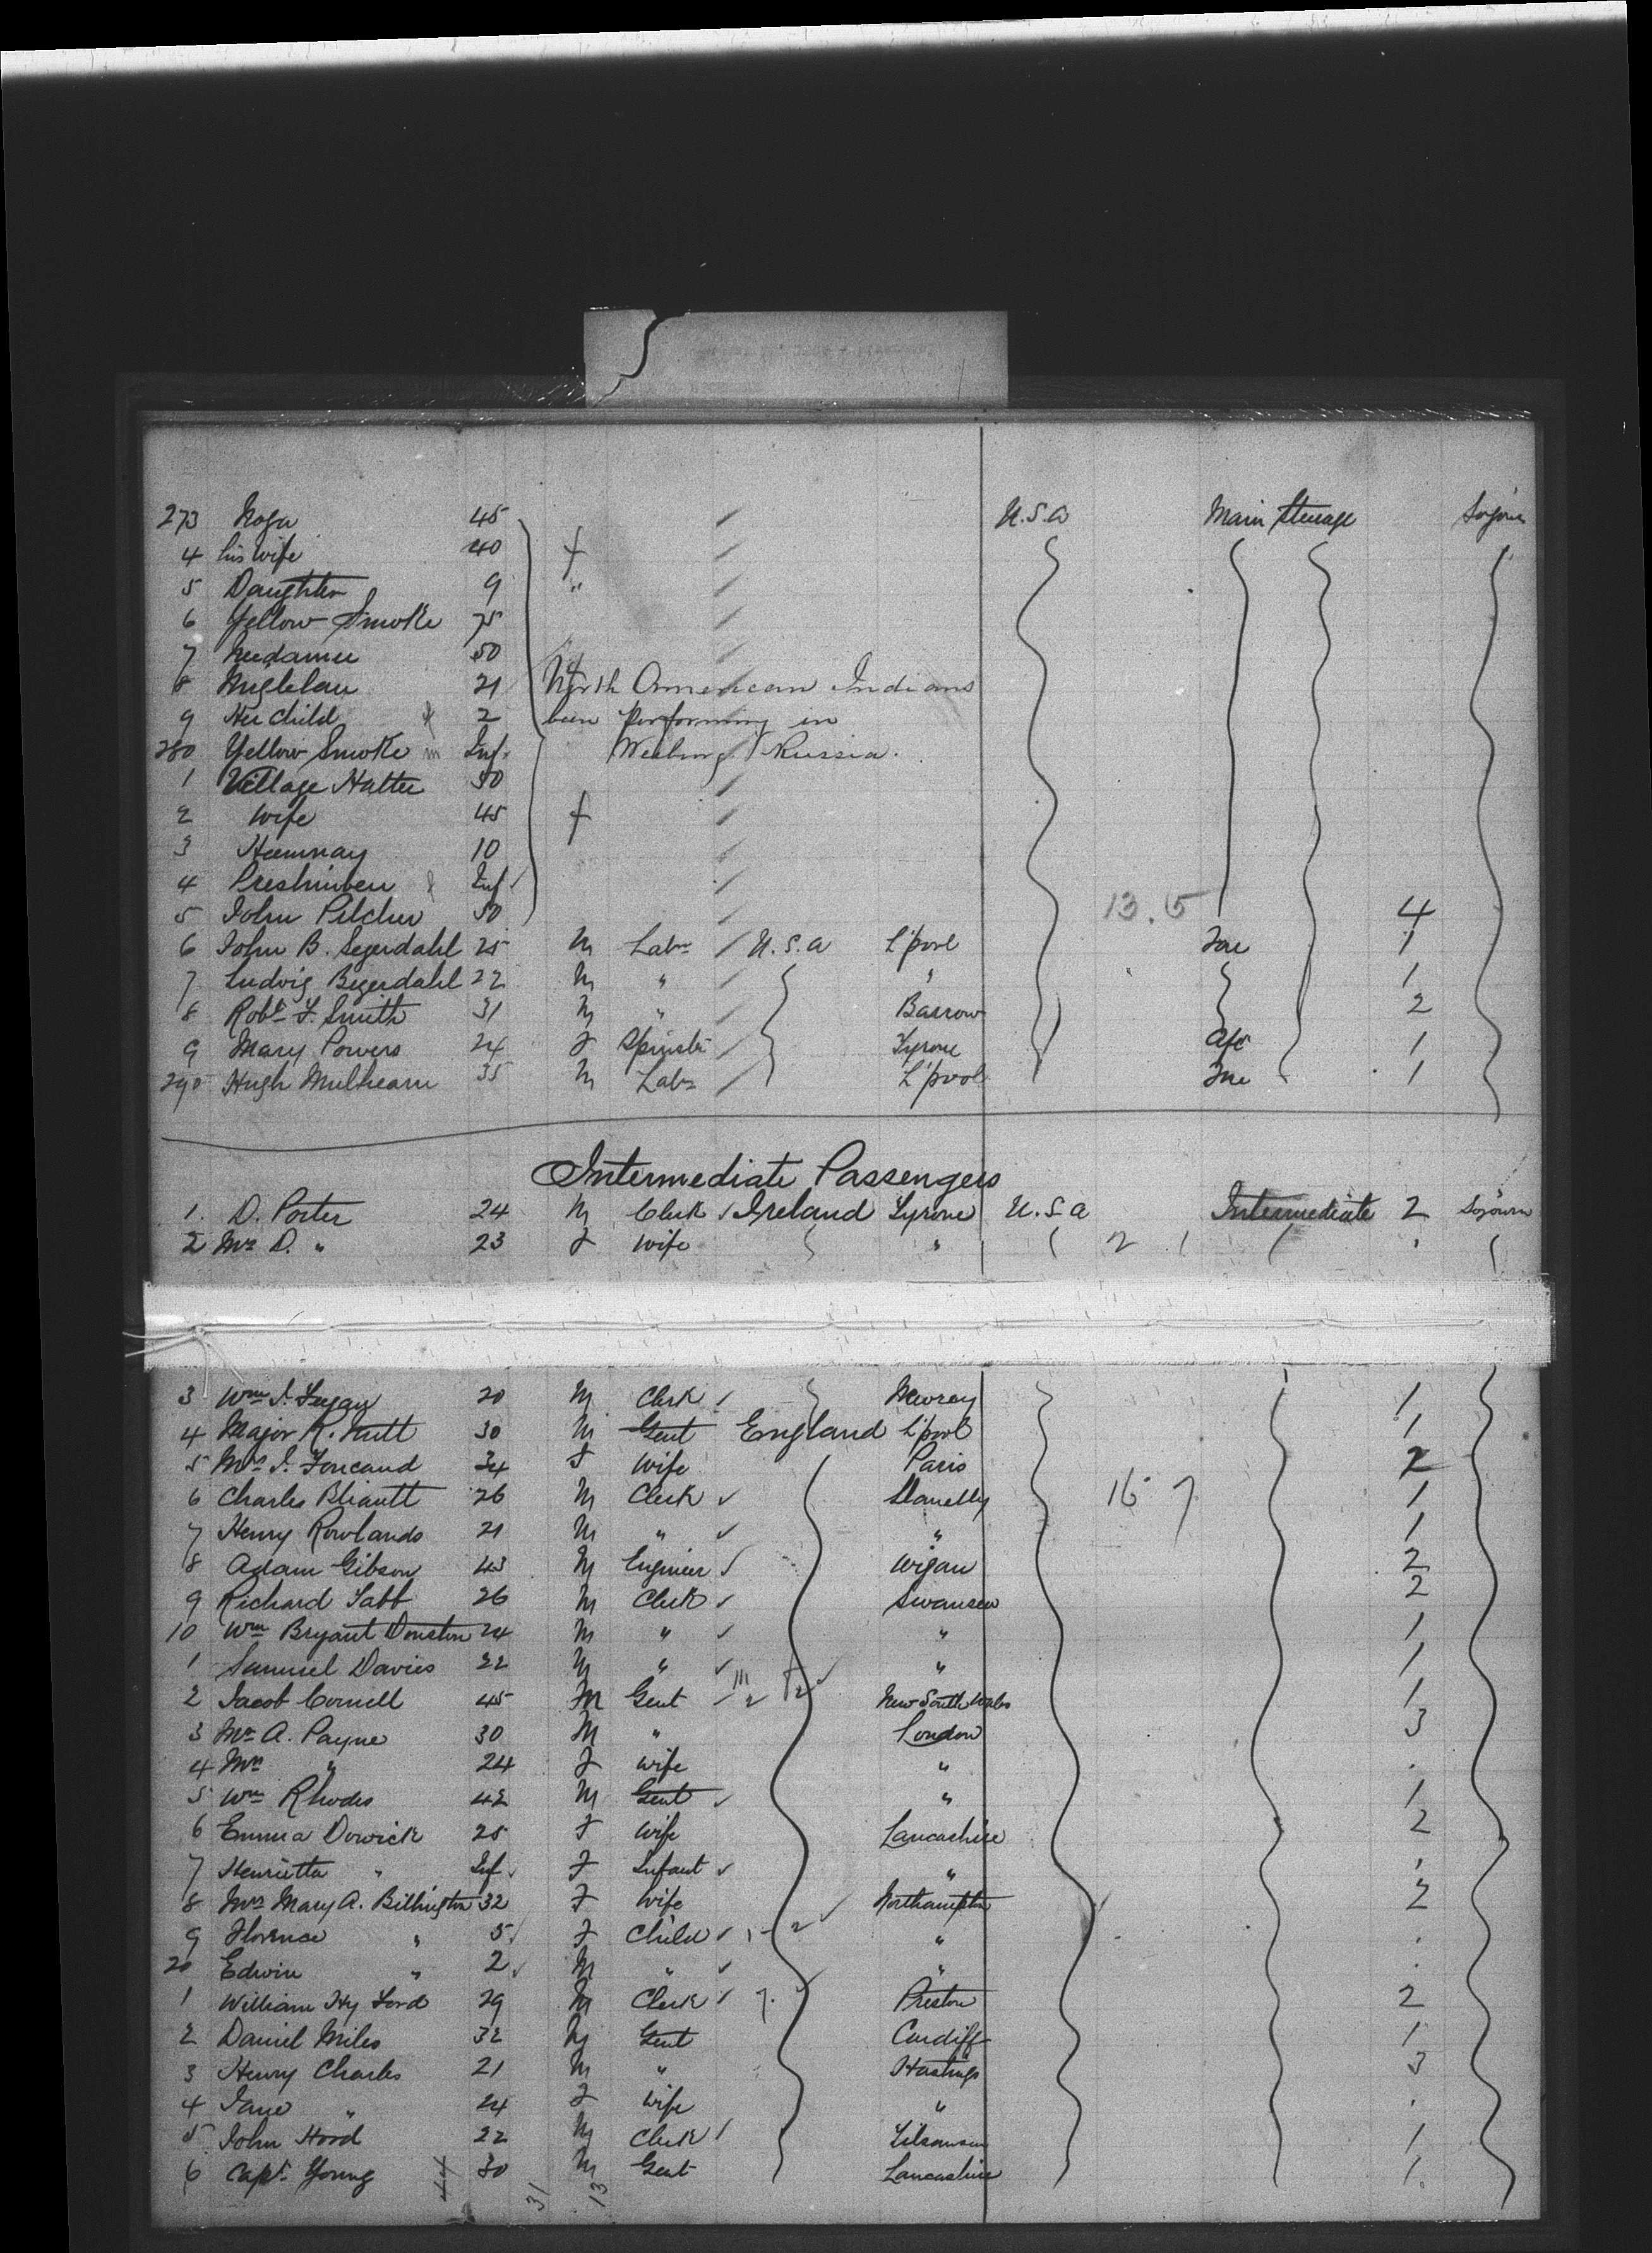 273 Noga 45 U.S.A Main Steerage Sojourn
4 his wife 40 f
5 Daughter 9 "
6 Yellow Smoke 75
7 50
8 21 North American Indians
9 Her Child f 2 been performing in
280 Yellow Smoke m Inf. Russia.
1 Village Halter 50
2 wife 45 f
3 10
4 f Inf
5 John Pilcher 50 13.5 4
6 John B. Segerdahl 25 M Labr U.S.A L'pool Fore 1
7 Ludvig Begerdahl 22 M " " 1
8 Robt F. Smith 31 M " Barrow 2
9 Mary Powers 24 F Spinster Tyrone Aft 1
290 Hugh Mulhearn 35 M Labr L'pool Fore 1
Intermediate Passengers
1. D. Porter 24 M Clerk Ireland Tyrone U.S.A Intermediate 2 Sojourn
2 Mrs D. " 23 F Wife " 2 1
3 Wm J. 20 M Clerk 1
4 Major R. Nutt 30 M Gent England L'pool 1
5 Mrs J. Foucaud 34 F Wife Paris 2
6 Charles 26 M Clerk Llanelly 15 7 1
7 Henry Rowlands 21 M " " 1
8 Adam Gibson 43 M Engineer Wigan 2
9 Richard Tabb 26 M Clerk Swansea 2
10 Wm Bryant Donston 24 M " " 1
1 Samuel Davies 22 M " " 1
2 Jacob Cornell 45 M Gent New South Wales 1
3 Mr A. Payne 30 M " London 3
4 Mrs " 24 F wife "
5 Wm Rhodes 42 M Gent " 1
6 Emma Dowick 25 F Wife Lancashire 2
7 Henrietta " Inf. F Infant "
8 Mrs Mary A. Billington 32 F Wife Northampton 2
9 Florence " 5 F Child "
20 Edwin " 2 M " "
1 William Hy Lord 29 M Clerk Preston 2
2 Daniel Miles 32 M Gent Cardiff 1
3 Henry Charles 21 M " Hastings 3
4 Jane " 24 F Wife "
5 John Hood 22 M Clerk 1
6 Capt. Young 30 M Gent Lancashire 1
44 31 13